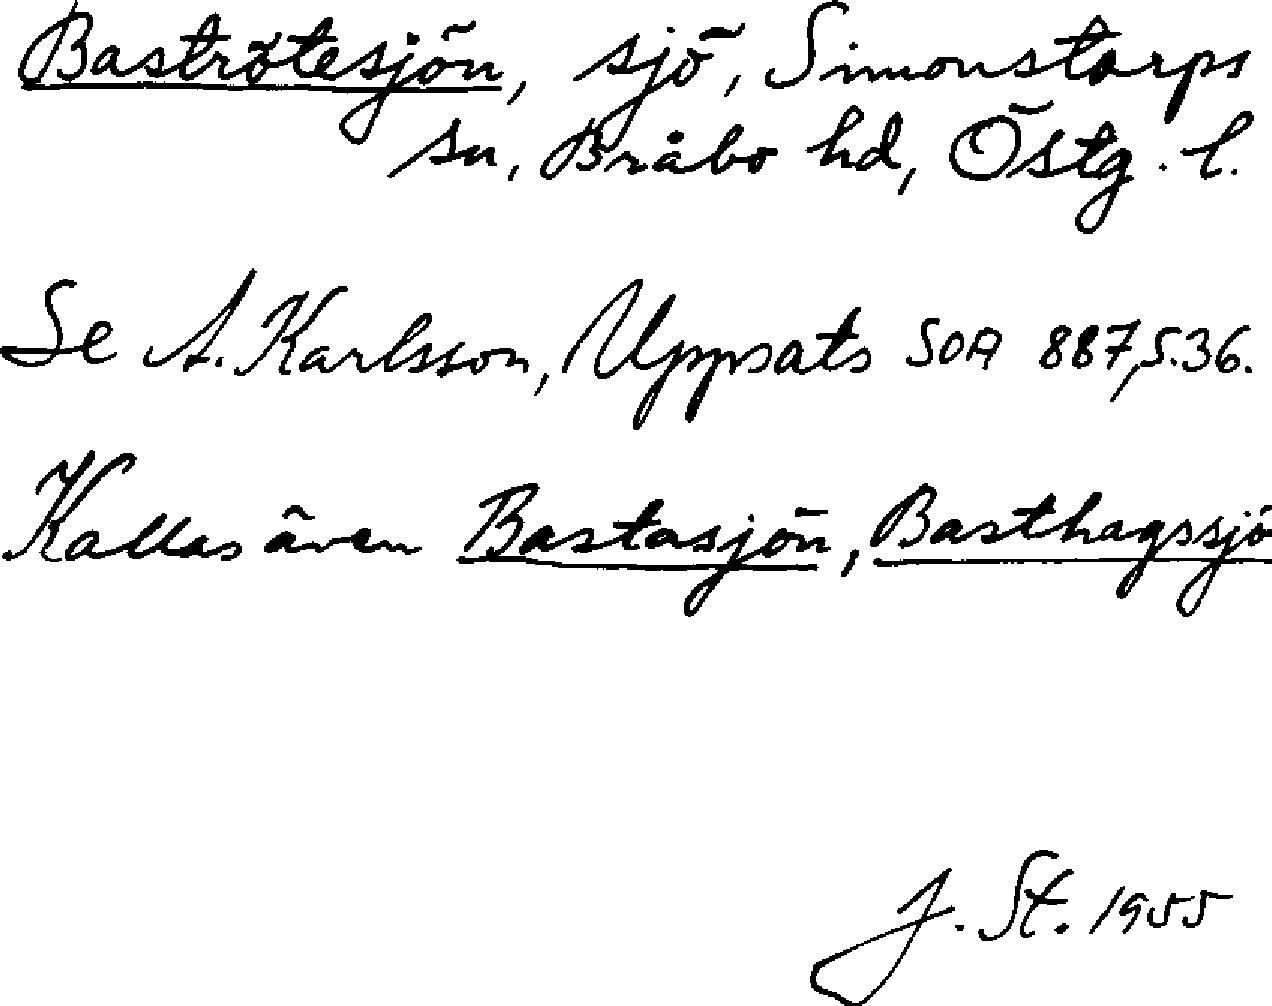 Baströtesjön, sjö, Simonstorps
sn, Bråbo hd, Östg. l.
Se A. Karlsson, Uppsats SOA 887, s. 36.
Kallas även Bastasjön, Basthagssjö
J. St. 1955